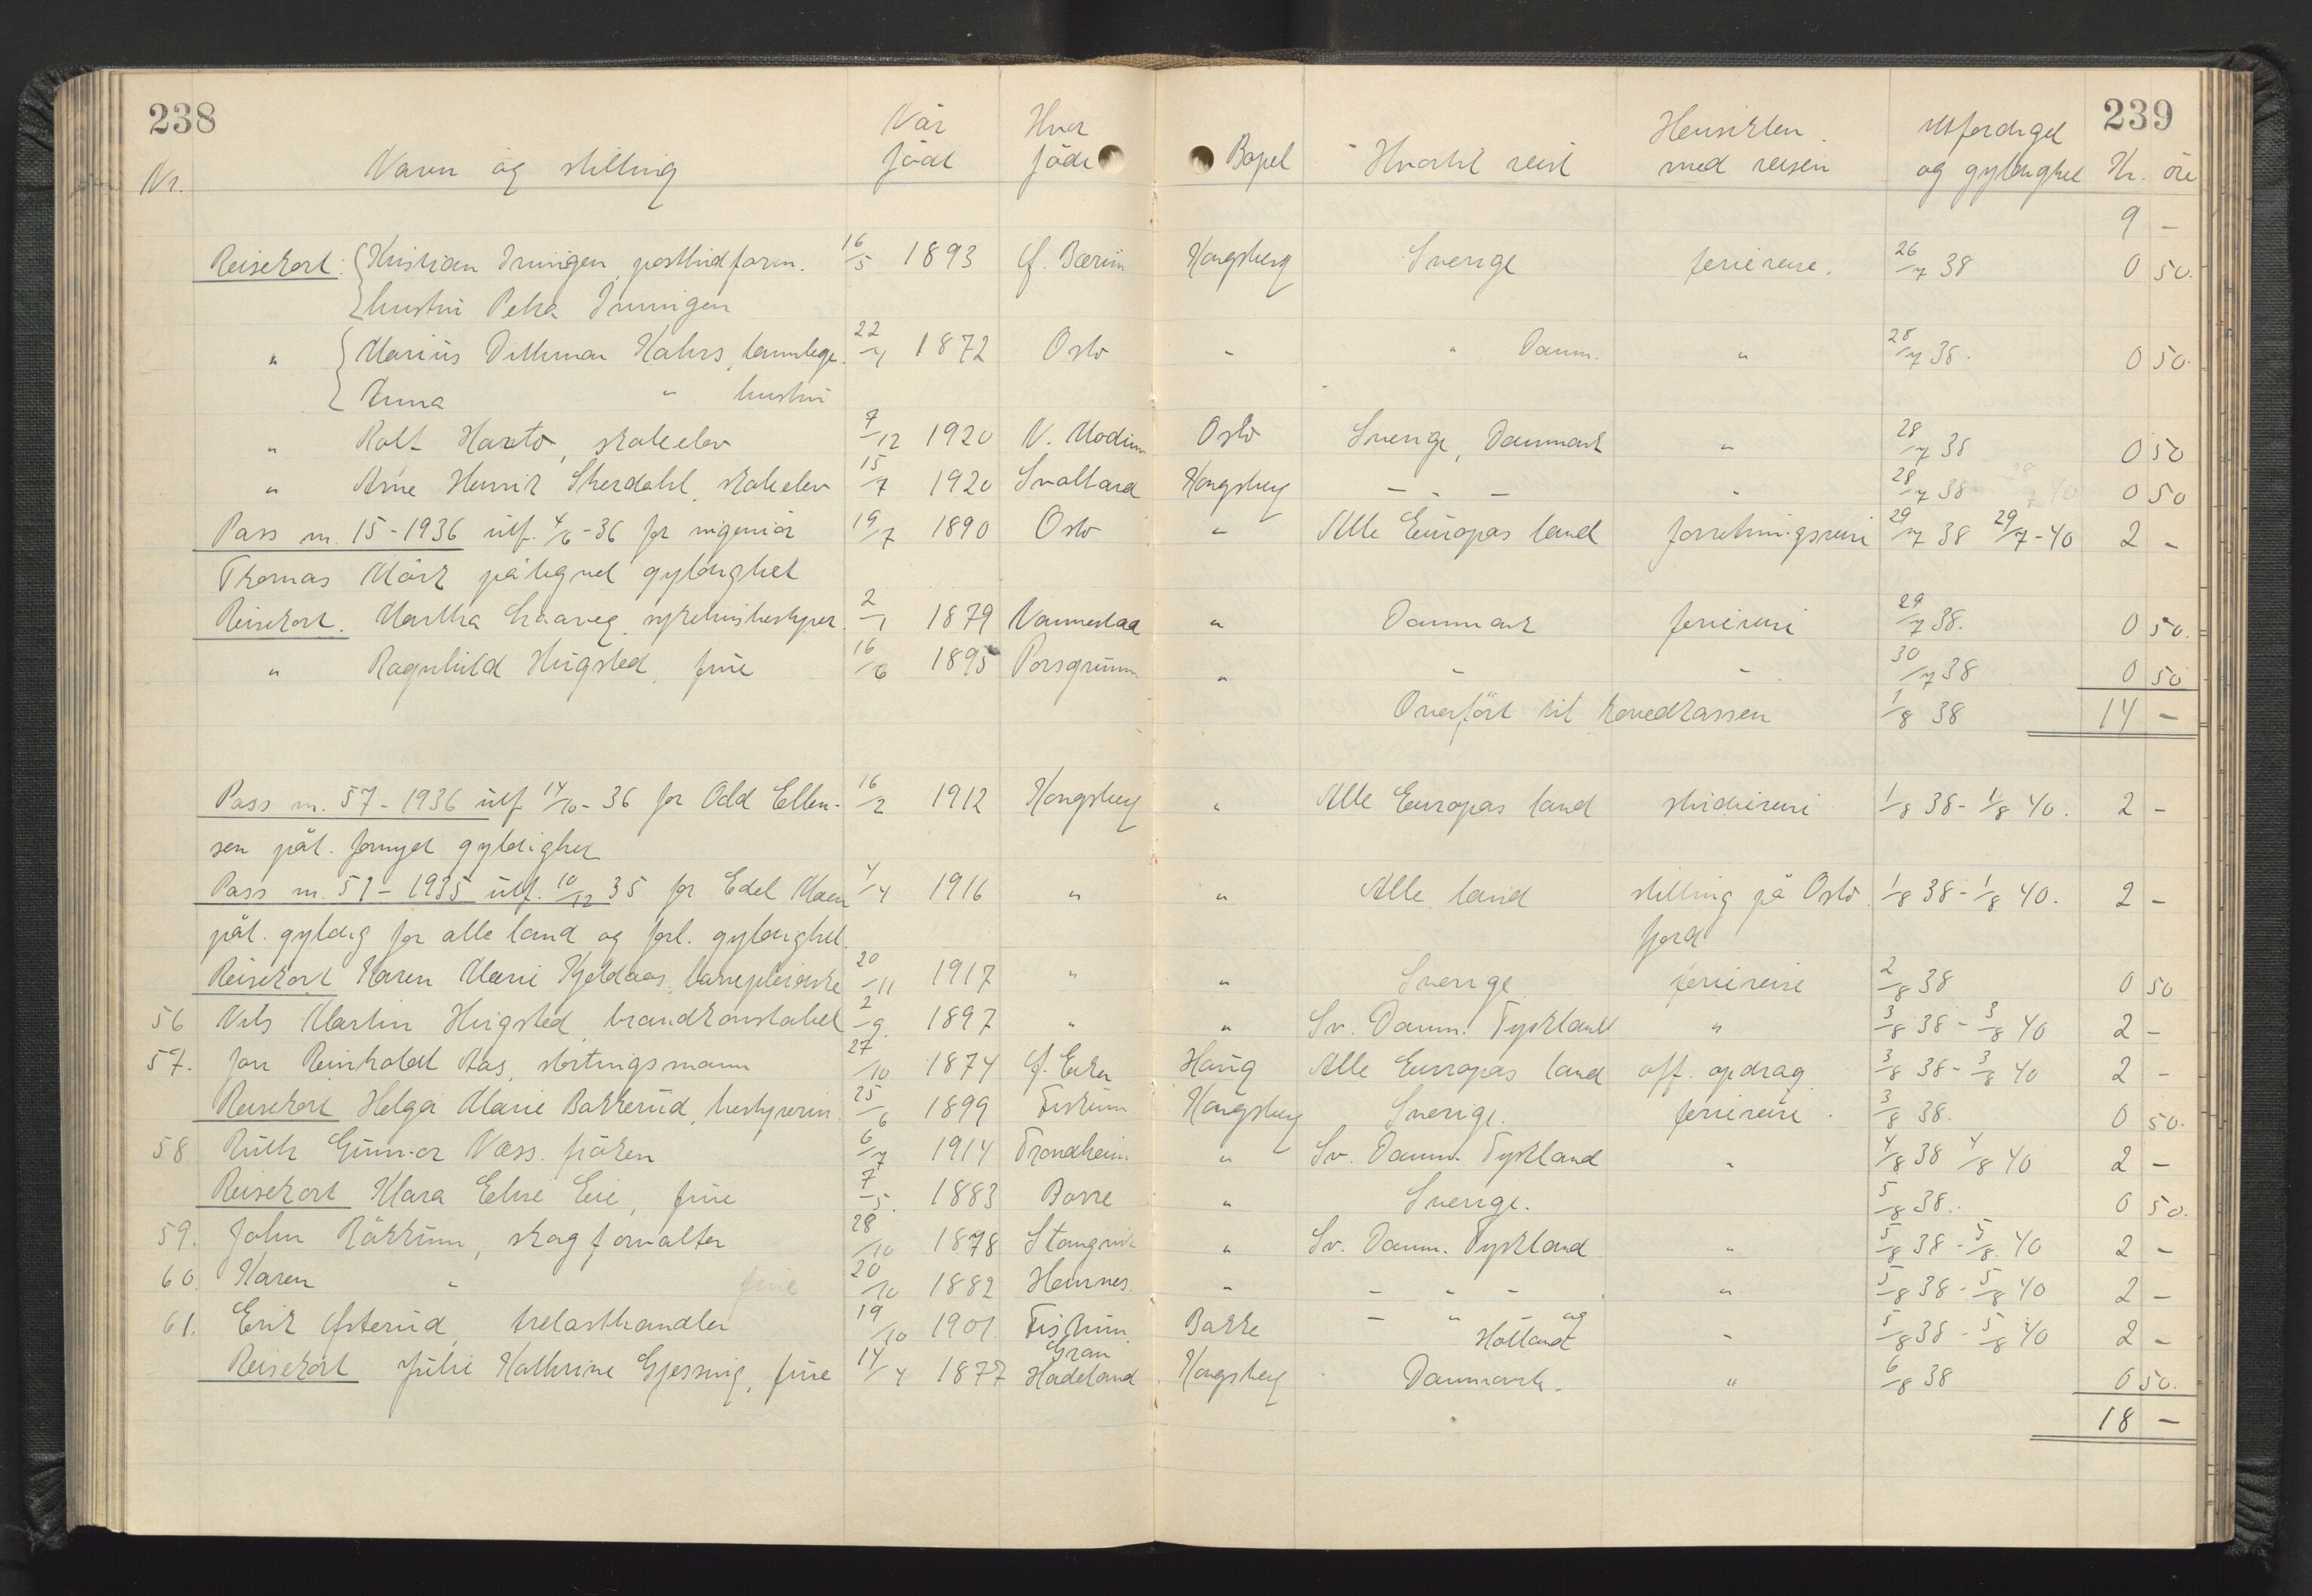 238
239
Nr. Navn og stilling Når född Hvor född Bopel Hvortil reist Hensikten med reisen Utferdiget og gyldighet Kr. öre
9 -
Reisekort: Kristian Irmingen, postbudform. 16/5 1893 Ö. Bærum Kongsberg Sverige feriereise. 26/7 38 0 50.
hustru Petra Irmingen
" Marius Dithmar Kahrs, tannlege 22/1 1872 Oslo - " Danm. " 28/7 38. 0 50.
Anna " hustru
" Rolf Haxto, skoleelev 7/12 1920 V. Modum Oslo Sverige, Danmark " 28/7 38 0 50
" Arne Henrik Skerdahl, skoleelev 15/7 1920 Svalbard Kongsberg - " - " 28/7 38 0 50
Pass nr. 15-1936 utf. 4/6-36 for ingeniör 19/7 1890 Oslo " Alle Europas land forretningsreise 29/7 38 29/7-40 2 -
Thomas Mörk påtegnet gyldighet
Reisekort. Martha Haaveg, sykehusbestyrer. 2/1 1879 " Danmark feriereise 29/7 38. 0 50.
" Ragnhild Hügsted, frue 16/6 1895 Porsgrunn " - - 30/7 38 0 50
Overfört til hovedkassen 1/8 38 14 -
Pass nr. 57-1936 utf 14/10-36 for Odd Ellen- 16/2 1912 Kongsberg " Alle Europas land studiereise 1/8 38 - 1/8 40. 2 -
sen påt. fornyet gyldighet
Pass nr. 51-1935 utf. 10/12 35 for Edel Moen 4/4 1916 " " Alle land stilling på Oslo 1/8 38 - 1/8 40. 2 -
påt. gyldig for alle land og forl. gyldighet. fjord
Reisekort Karen Marie Kjeldaas, barnepleierske 20/11 1917 " " Sverige feriereise 2/8 38 0 50
56 Nils Martin Hügsted, brandkonstabel 2/9. 1897 " " Sv. Danm. Tyskland " 3/8 38 - 3/8 40 2 -
57. Jon Reinholdt Aas, stortingsmann 27/10 1874 Ö. Eiker Haug Alle Europas land off. opdrag 3/8 38 - 3/8 40 2 -
Reisekort Helga Marie Bakkerud, bestyrerin. 25/6 1899 Fiskum Kongsberg Sverige. feriereise. 3/8 38. 0 50.
58 Ruth Gunvor Næss. fröken 6/7 1914 Trondheim " Sv. Danm. Tyskland " 4/8 38 4/8 40 2 -
Reisekort Klara Elise Eie, frue 7/5. 1883 Borre " Sverige. 5/8 38. 0 50.
59. John Rökkum, skogforvalter 28/10 1878 Stangvik " Sv. Danm. Tyskland " 5/8 38 - 5/8. 40 2 -
60. Karen " frue 20/10 1882 Hemnes. " - " - " 5/8 38 - 5/8 40 2 -
61. Erik Österud, trelasthandler 19/10 1901. Fiskum. Bakke - " - og Holland " 5/8 38 - 5/8 40 2 -
Reisekort Julie Kathrine Gjessing, frue 14/4 1877 Gran Hadeland Kongsberg Danmark. " 6/8 38 0 50.
18 -